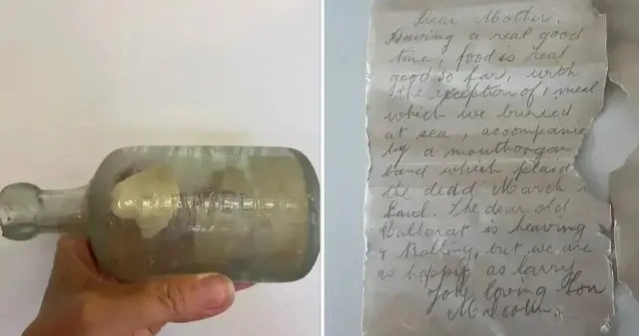 Dear Mother.
Having a real good
time, food is real
good so far, with
the exception of 1 meal
which we buried
at sea, accompanie
by a mouthorgan
band which plaid
the dead March i
Saul. The dear old
Ballarat is heaving
& Rolling, but we are
as happy as larry
your loving Son
Malcolm.